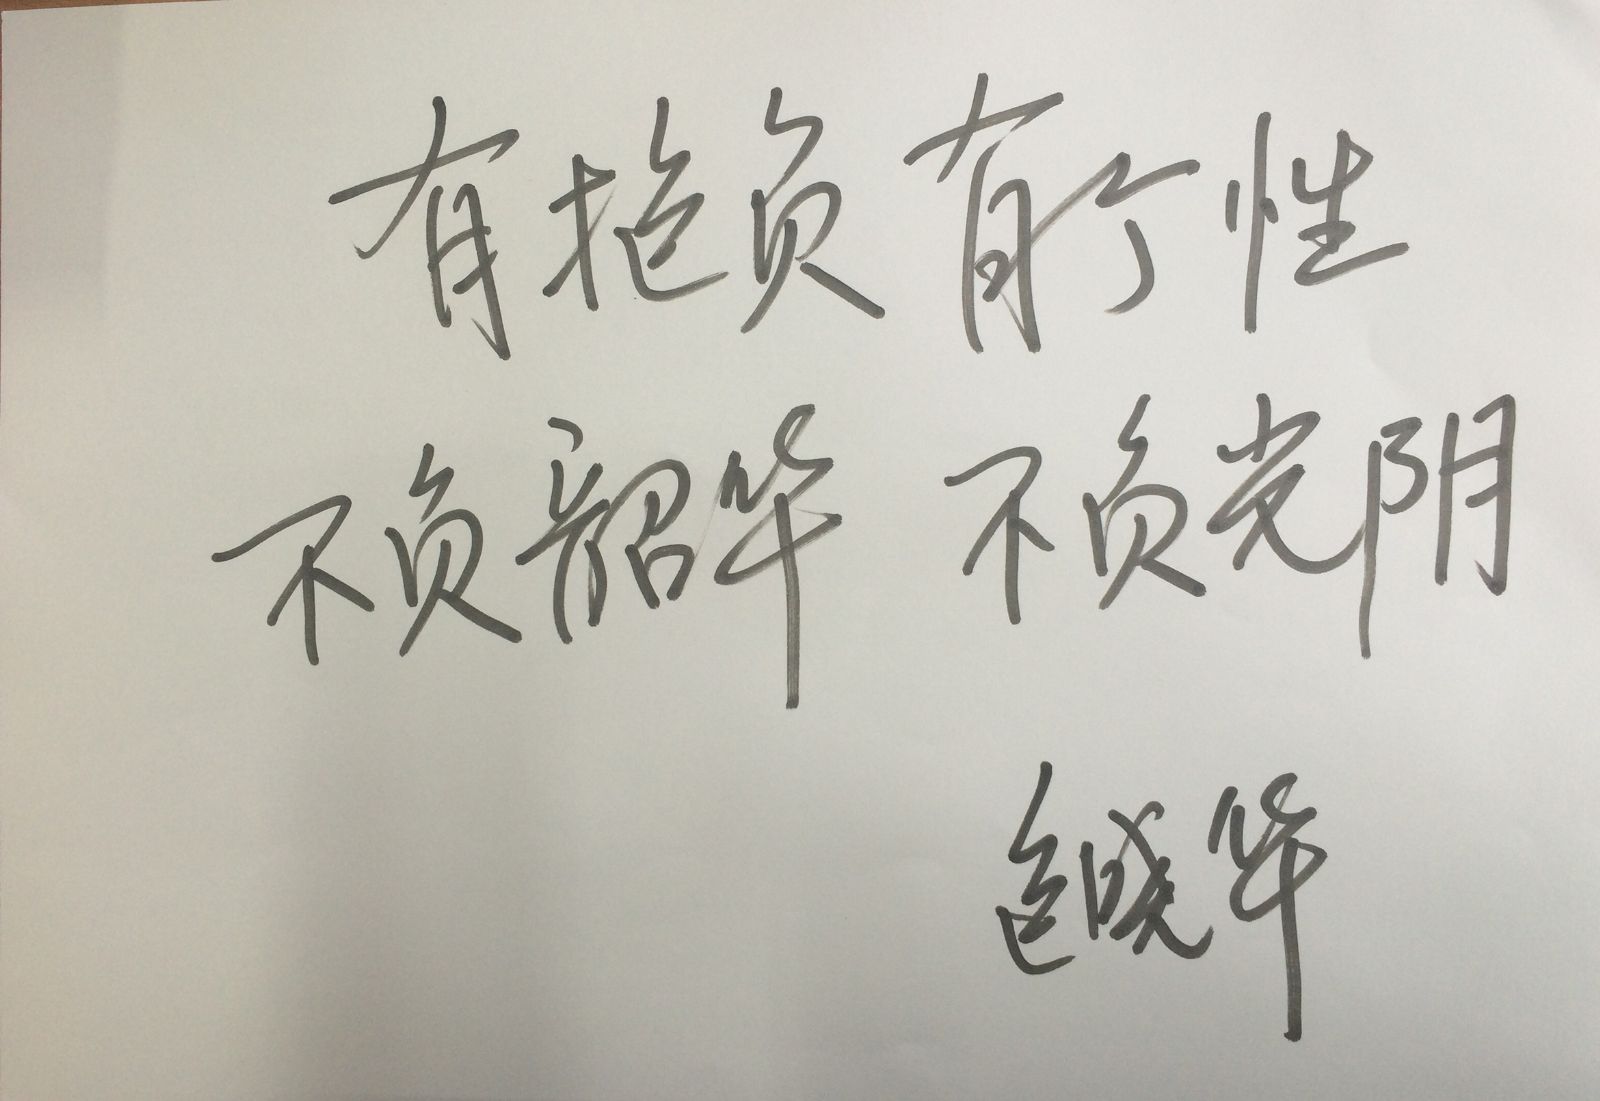 有抱负 有个性
不负韶华 不负光阴
晓华